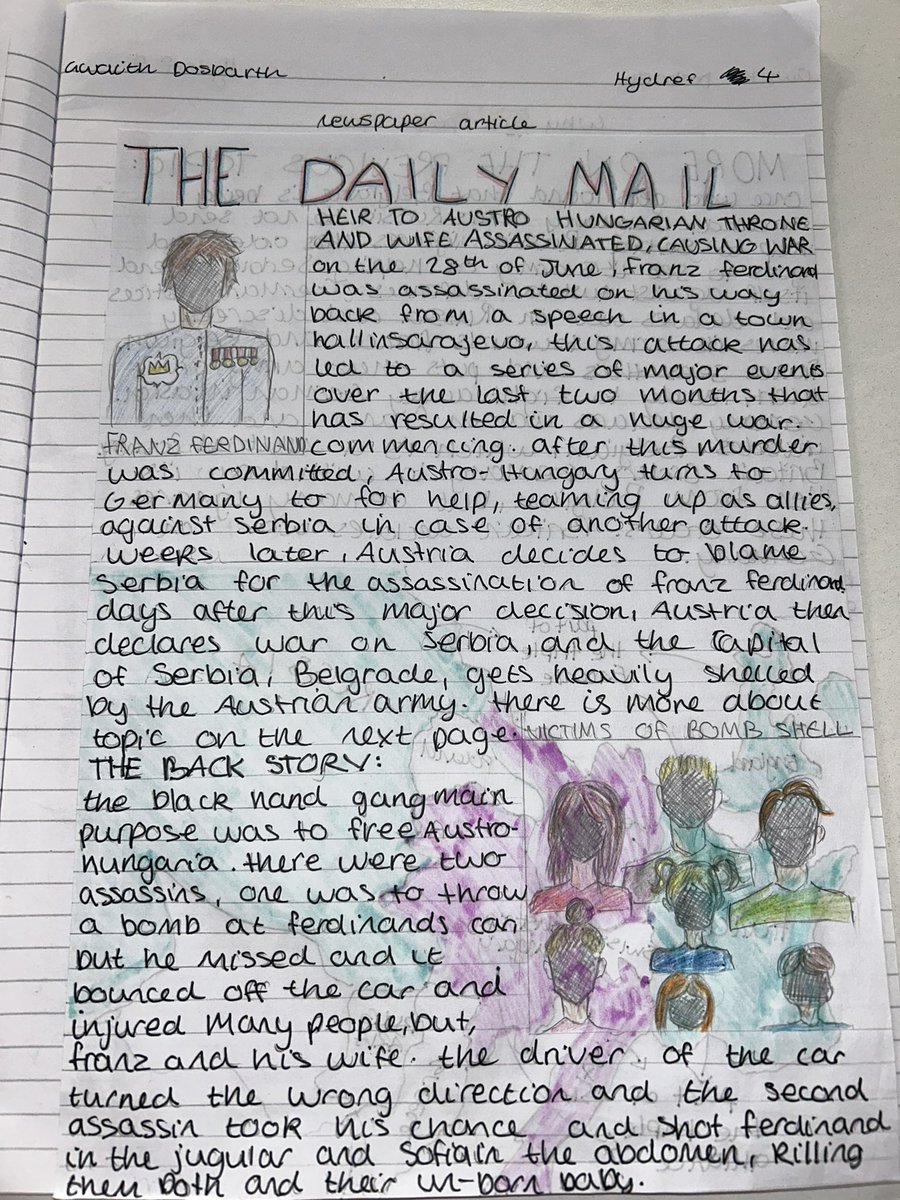 Gwaith Dosbarth
Hydref 4
newspaper article
THE DAILY MAIL
HEIR TO AUSTRO HUNGARIAN THRONE
AND WIFE ASSASSINATED, CAUSING WAR
on the 28th of June, franz ferdinand
was assassinated on his way
back from a speech in a town
hallinsarajevo, this attack has
led to a series of major events
over the last two months that
has resulted in a huge war.
FRANZ FERDINAND
commencing. after this murder
was committed, Austro-Hungary turns to
Germany to for help, teaming up as allies,
against serbia in case of another attack.
weeks later, Austria decides to blame
Serbia for the assassination of franz ferdinand
days after this major decision, Austria then
declares war on Serbia, and the capital
of Serbia, Belgrade, gets heavily shelled
by the Austrian army. there is more about
topic on the next page.
VICTIMS OF BOMB SHELL
THE BACK STORY:
the black hand gang main
purpose was to free Austro-
hungaria. there were two
assassins, one was to throw
a bomb at ferdinands car
but he missed and it
bounced off the car and
injured many people, but,
franz and his wife. the driver. of the car
turned the wrong direction and the second
assassin took his chance and shot ferdinand
in the jugular and Sofia in the abdomen, killing
them both and their un-born baby.